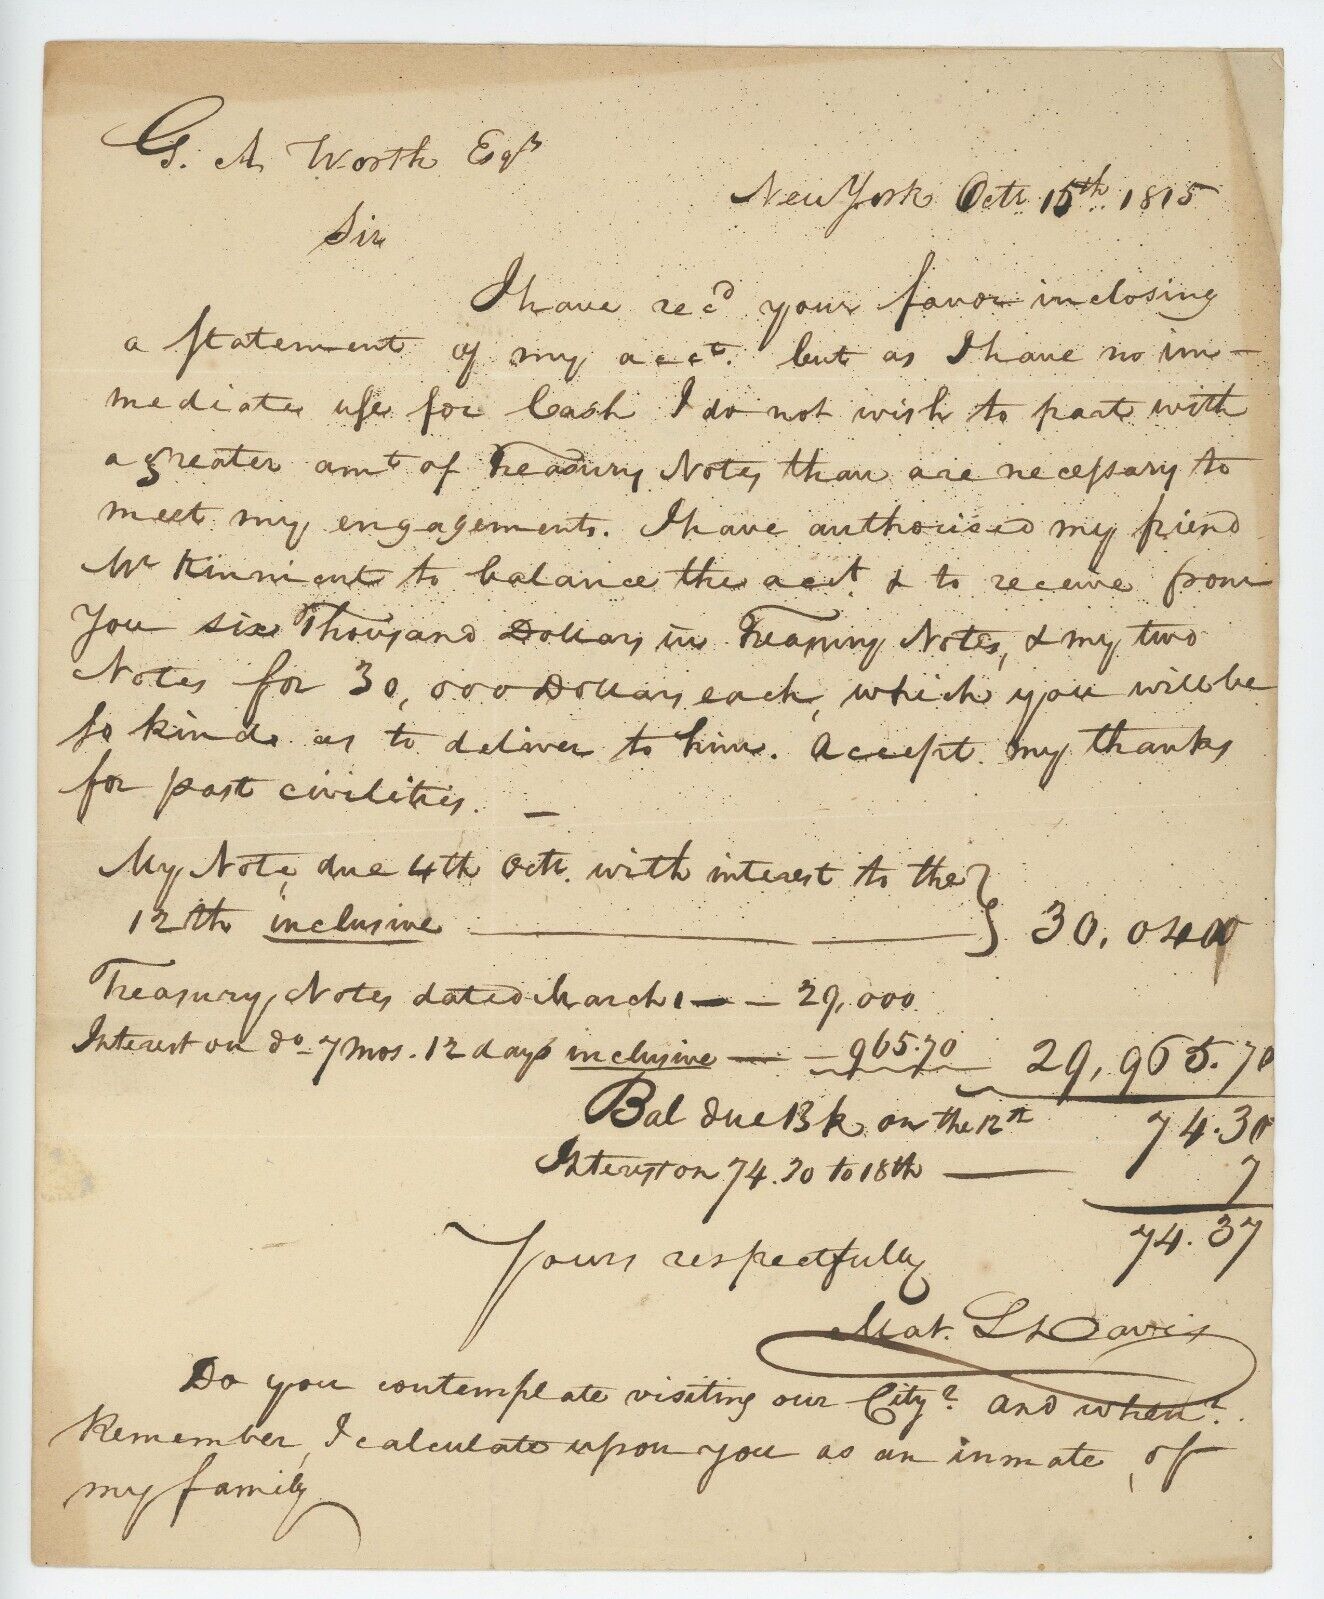 G. A. Worth Esqr
New York Octr 15th 1815
Sir
I have recd your favor inclosing
a statement of my acct. but as I have no im-
mediate use for Cash I do not wish to part with
a greater amt of Treasury Notes than are necessary to
meet my engagements. I have authorised my friend
Mr Kinnient to balance the acct. & to receive from
you six Thousand Dollars in Treasury Notes, & my two
Notes for 30,000 Dollars each, which you will be
so kind as to deliver to him. Accept my thanks
for past civilities. —
My Note, due 4th Octr. with interest to the }
12th inclusive ——— 30,040
Treasury Notes dated March 1 — — 29,000
Interest on do – 7 mos. 12 days inclusive — – 965.70 29,965.70
Bal due Bk on the 12th 74.30
Interest on 74.30 to 18th — 7
74.37
Yours respectfully
Mat. L. Davis
Do you contemplate visiting our City? and when?
Remember, I calculate upon you as an inmate, of
my family